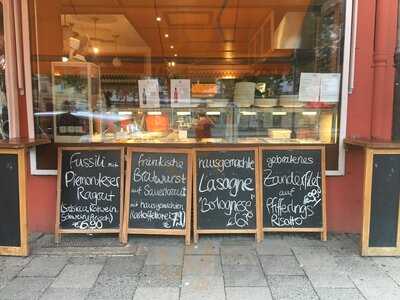 Fussili mit
Piemonteser
Ragout
(Salsiccia, Rotwein,
Schweinefleisch)
€ 6,90
fränkische
Bratwurst
auf
Sauerkraut
mit hausgemachtem
Kartoffelpüree
7,50
hausgemachte
Lasagne
"Bolognese"
gebratenes
Zanderfilet
auf
Pfifferlings
Risotto